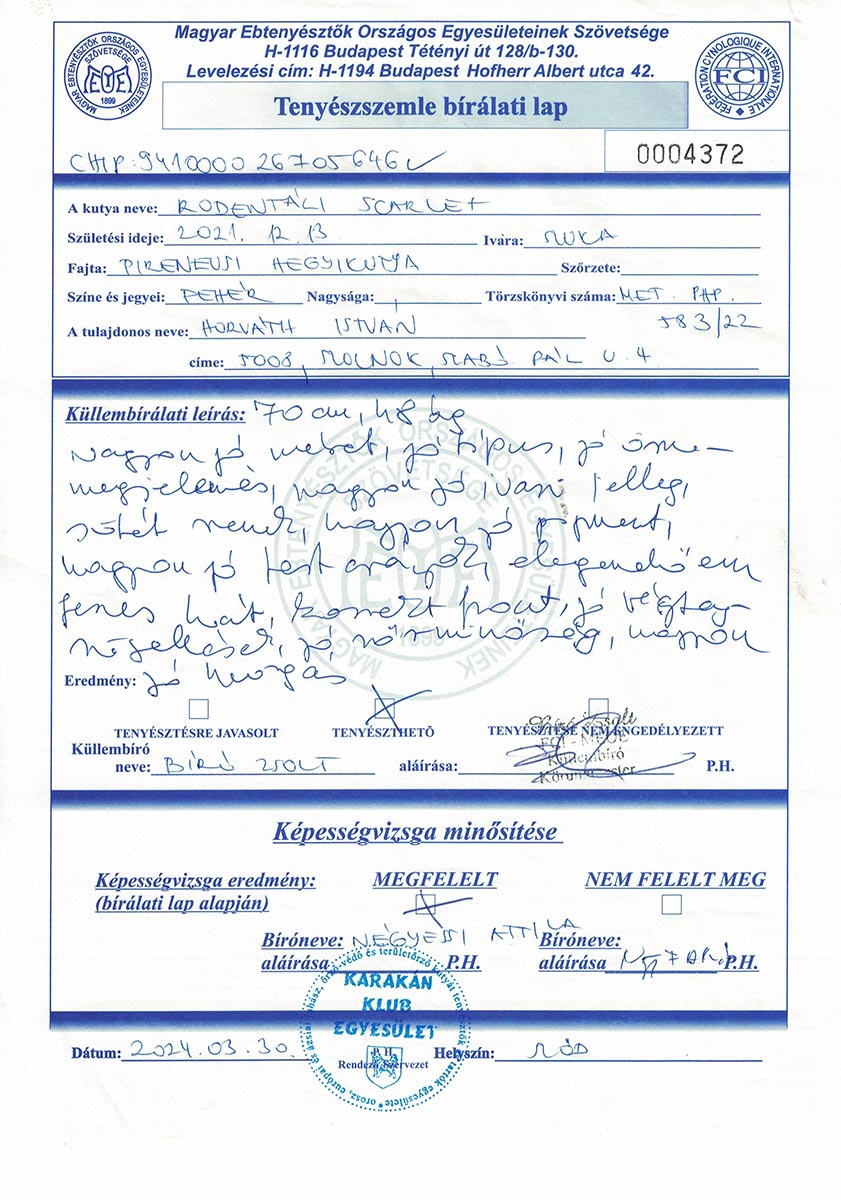 Magyar Ebtenyésztők Országos Egyesületeinek Szövetsége
H-1116 Budapest Tétényi út 128/b-130.
Levelezési cím: H-1194 Budapest Hofherr Albert utca 42.
MAGYAR EBTENYÉSZTŐK ORSZÁGOS EGYESÜLETEINEK SZÖVETSÉGE
1899
FÉDÉRATION CYNOLOGIQUE INTERNATIONALE
FCI
Tenyészszemle bírálati lap
CHIP: 941000026705646
0004372
A kutya neve: RODENTÁLI SCARLET
Születési ideje: 2021. 12. 13 Ivara: SZUKA
Fajta: PIRENEUSI HEGYIKUTYA Szőrzete:
Színe és jegyei: FEHÉR Nagysága: Törzskönyvi száma: MET. PHP.
583/22
A tulajdonos neve: HORVÁTH ISTVÁN
címe: 5008, SZOLNOK, SZABÓ PÁL U. 4
Küllembírálati leírás: 70 cm, 48 kg
nagyon jó méret, jó típus, jó össz-
megjelenés, nagyon jó ivari jelleg,
sötét szemek, nagyon jó pigment,
nagyon jó test arányok, elegendően
feszes hát, korrekt front, jó végtag-
szögellések, jó szőrminőség, nagyon
Eredmény: jó mozgás
TENYÉSZTÉSRE JAVASOLT TENYÉSZTHETŐ TENYÉSZTÉSE NEM ENGEDÉLYEZETT
Küllembíró
neve: BÍRÓ ZSOLT aláírása: P.H.
Bíró Zsolt
FCI - MEOE
Küllembíró
Körmmester
Képességvizsga minősítése
Képességvizsga eredmény: MEGFELELT NEM FELELT MEG
(bírálati lap alapján)
Bíróneve: NÉGYESSI ATTILA Bíróneve:
aláírása P.H. aláírása P.H.
orosz, európai és ázsiai juhász, őrző-védő és területőrző kutyát tenyésztők és tartók egyesülete
KARAKÁN
KLUB
EGYESÜLET
Dátum: 2024.03.30. P.H. Helyszín: SZÓD
Rendező Szervezet